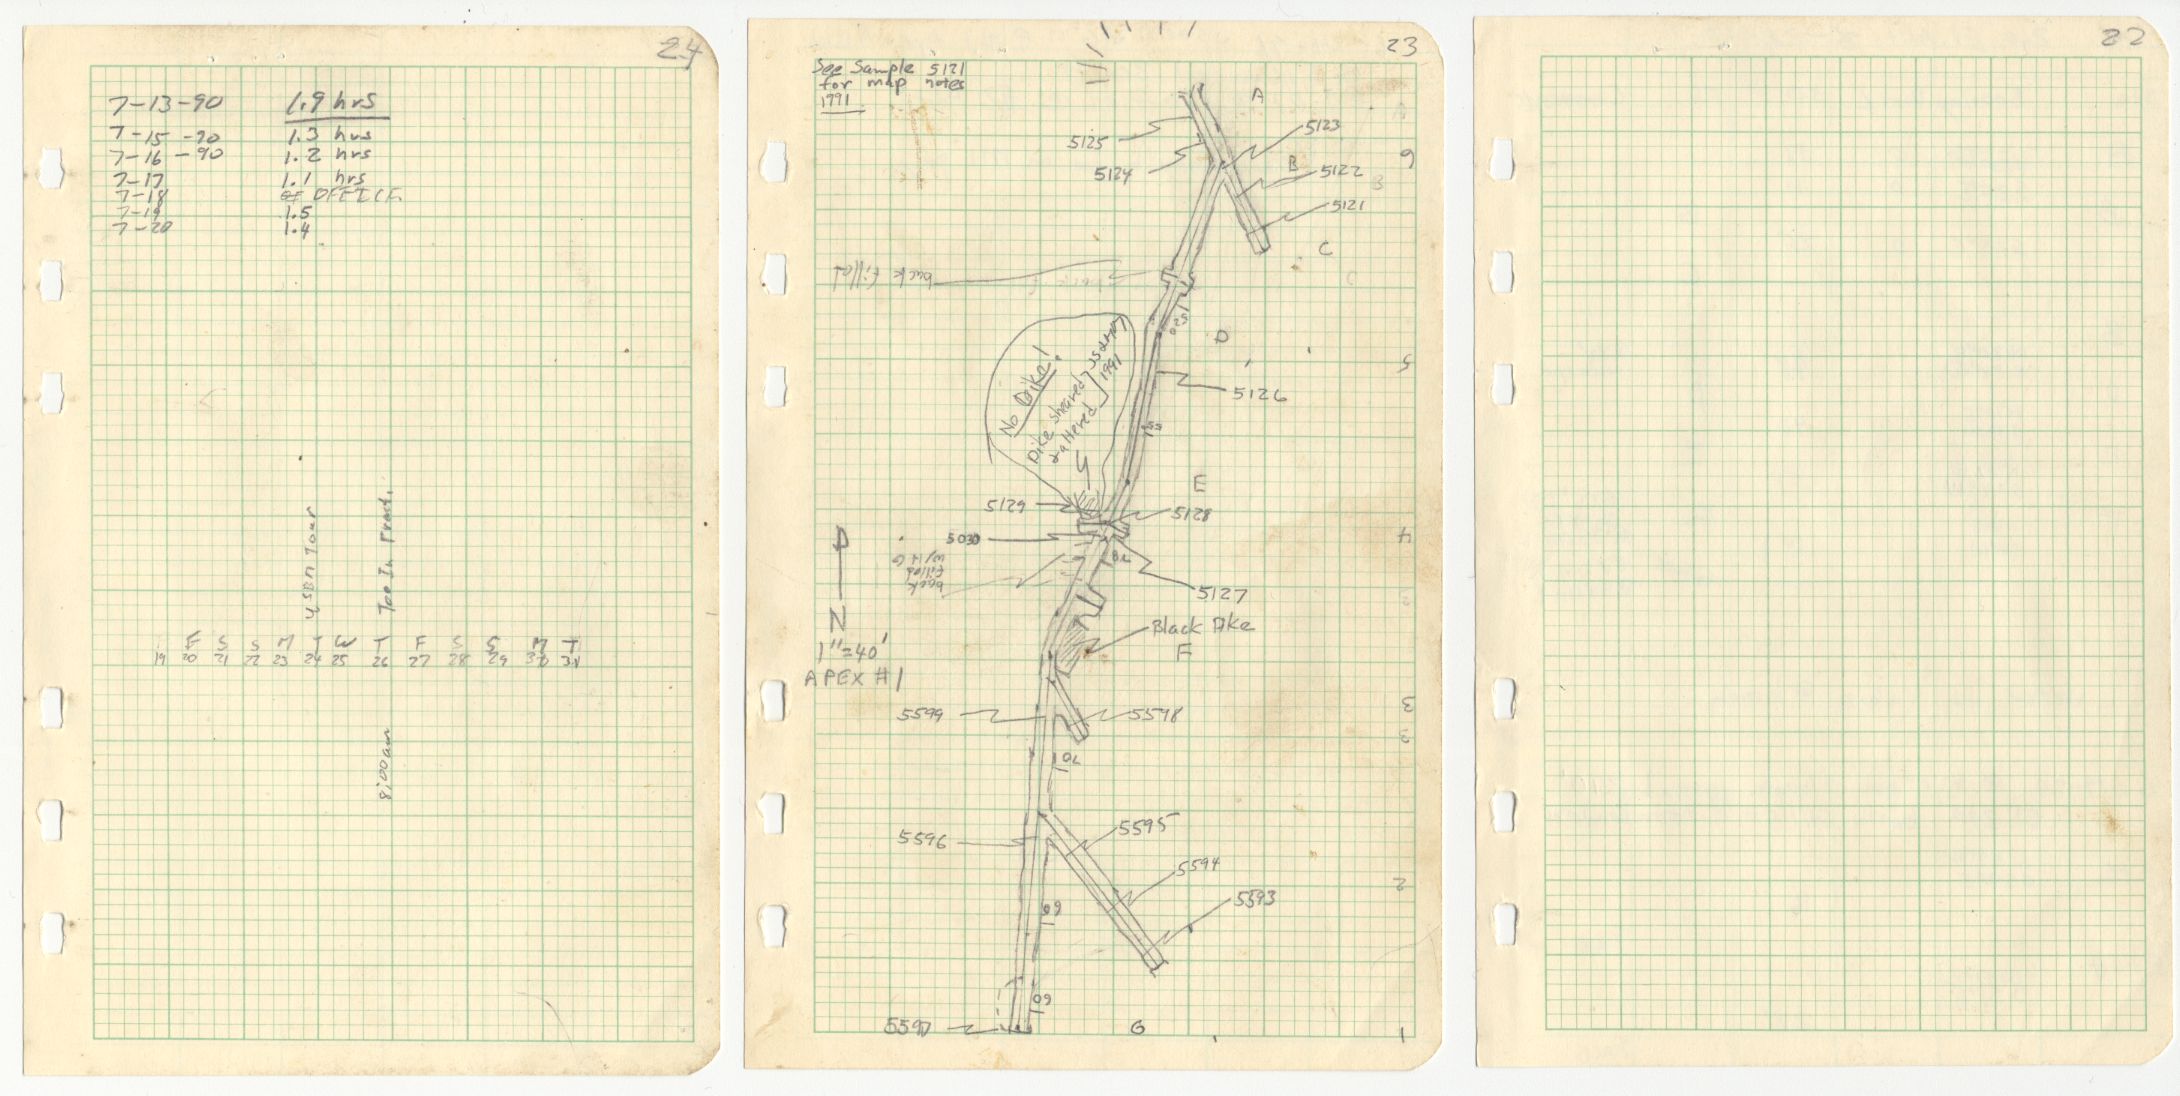 24
7-13-90 1.9 hrs
7-15-90 1.3 hrs
7-16-90 1.2 hrs
7-17 1.1 hrs
7-18 OFFICE
7-19 1.5
7-20 1.4
USBM Tour
Joe In Front.
F S S M T W T F S S M T
19 20 21 22 23 24 25 26 27 28 29 30 31
8:00am
23
See Sample 5121
for map notes
1991
A
5125
5123
5124
6
B
5122
B
5121
C
back filled
D
5126
5
No Dike!
Dike sheared
& altered
1991
55
E
5129
5128
5030
4
back
filled
w/ H2O
5127
Black Dike
F
N
1"=40'
APEX #1
5599
5598
3
3
70
5596
5595
5594
2
5593
60
60
5597
G
1
22